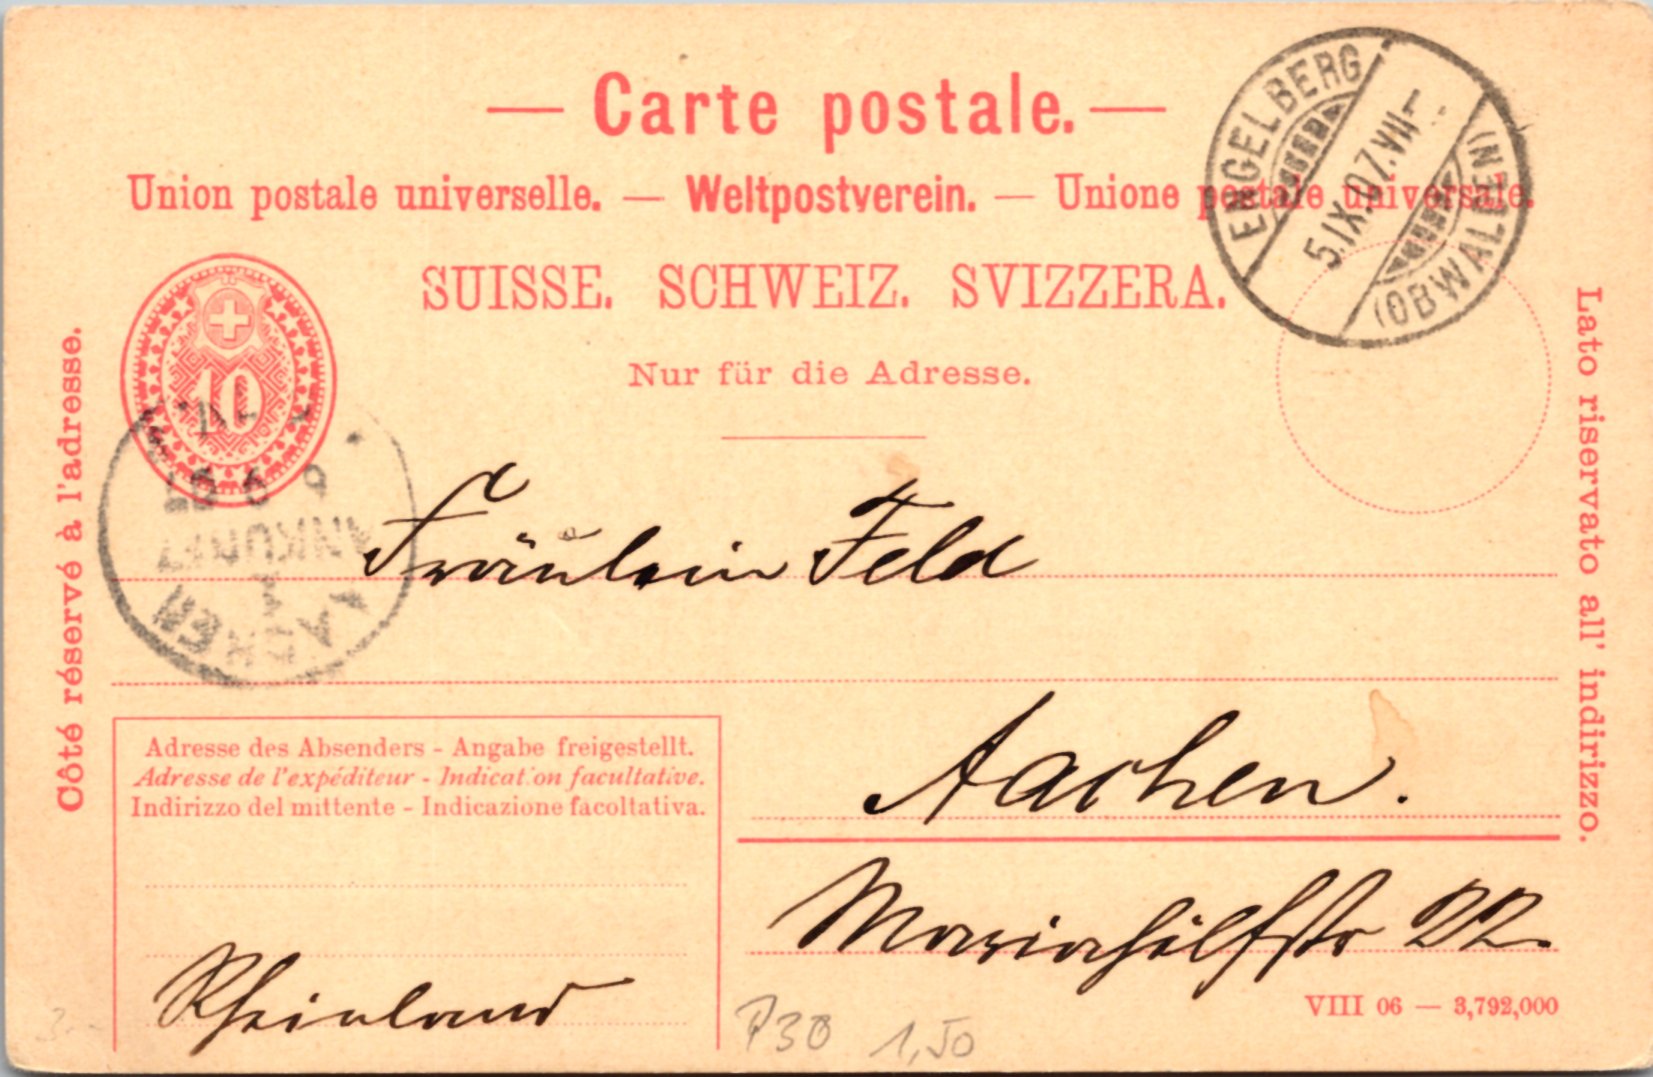 — Carte postale. —
Union postale universelle. — Weltpostverein. — Unione postale universale.
SUISSE. SCHWEIZ. SVIZZERA.
Nur für die Adresse.
ENGELBERG
5.IX.07.VIII-
(OBWALDEN)
10
6 9 07
ANKUNFT
1
AACHEN
Côté réservé à l'adresse.
Lato riservato all' indirizzo.
Fräulein Feld
Aachen.
Mariahilfstr 22.
Adresse des Absenders - Angabe freigestellt.
Adresse de l'expéditeur - Indication facultative.
Indirizzo del mittente - Indicazione facoltativa.
Rheinland
VIII 06 — 3,792,000
P30 1,50
3.-